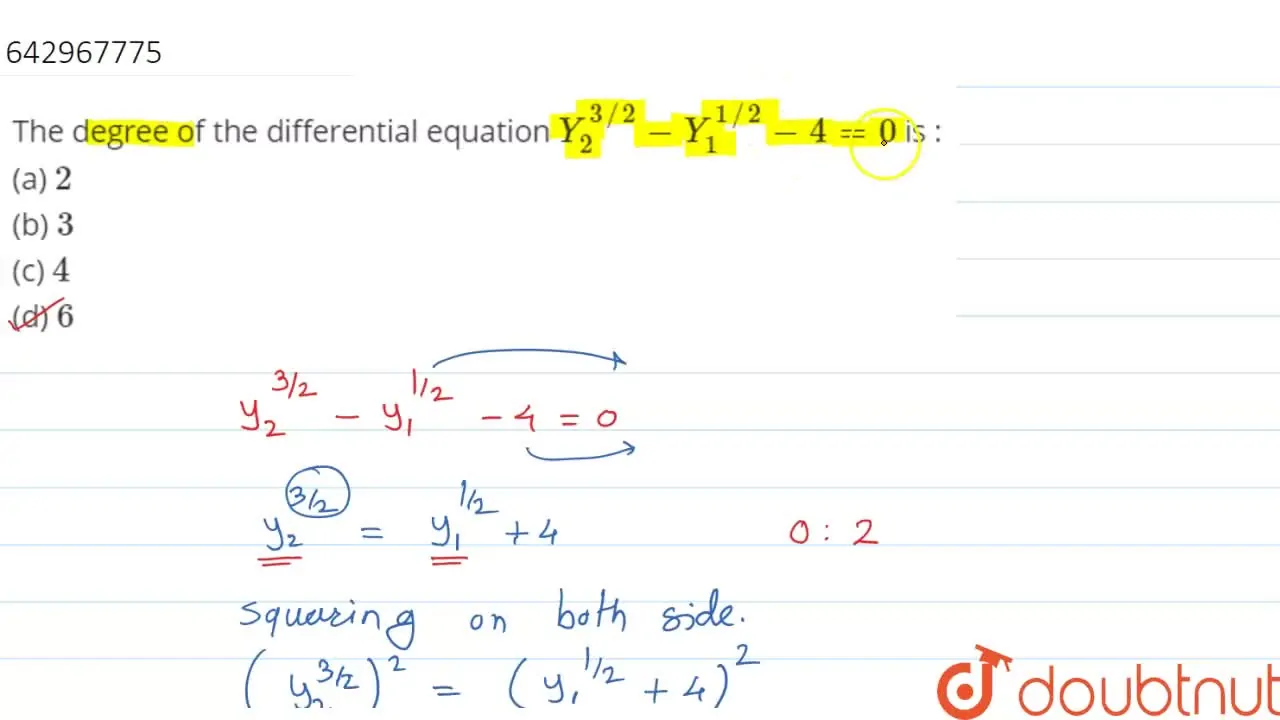 642967775
The degree of the differential equation Y₂^{3/2} − Y₁^{1/2} − 4 == 0 is :
(a) 2
(b) 3
(c) 4
(d) 6
y₂^{3/2} − y₁^{1/2} − 4 = 0
y₂^{3/2} = y₁^{1/2} + 4 O : 2
squaring on both side.
(y₂^{3/2})² = (y₁^{1/2} + 4)²
doubtnut